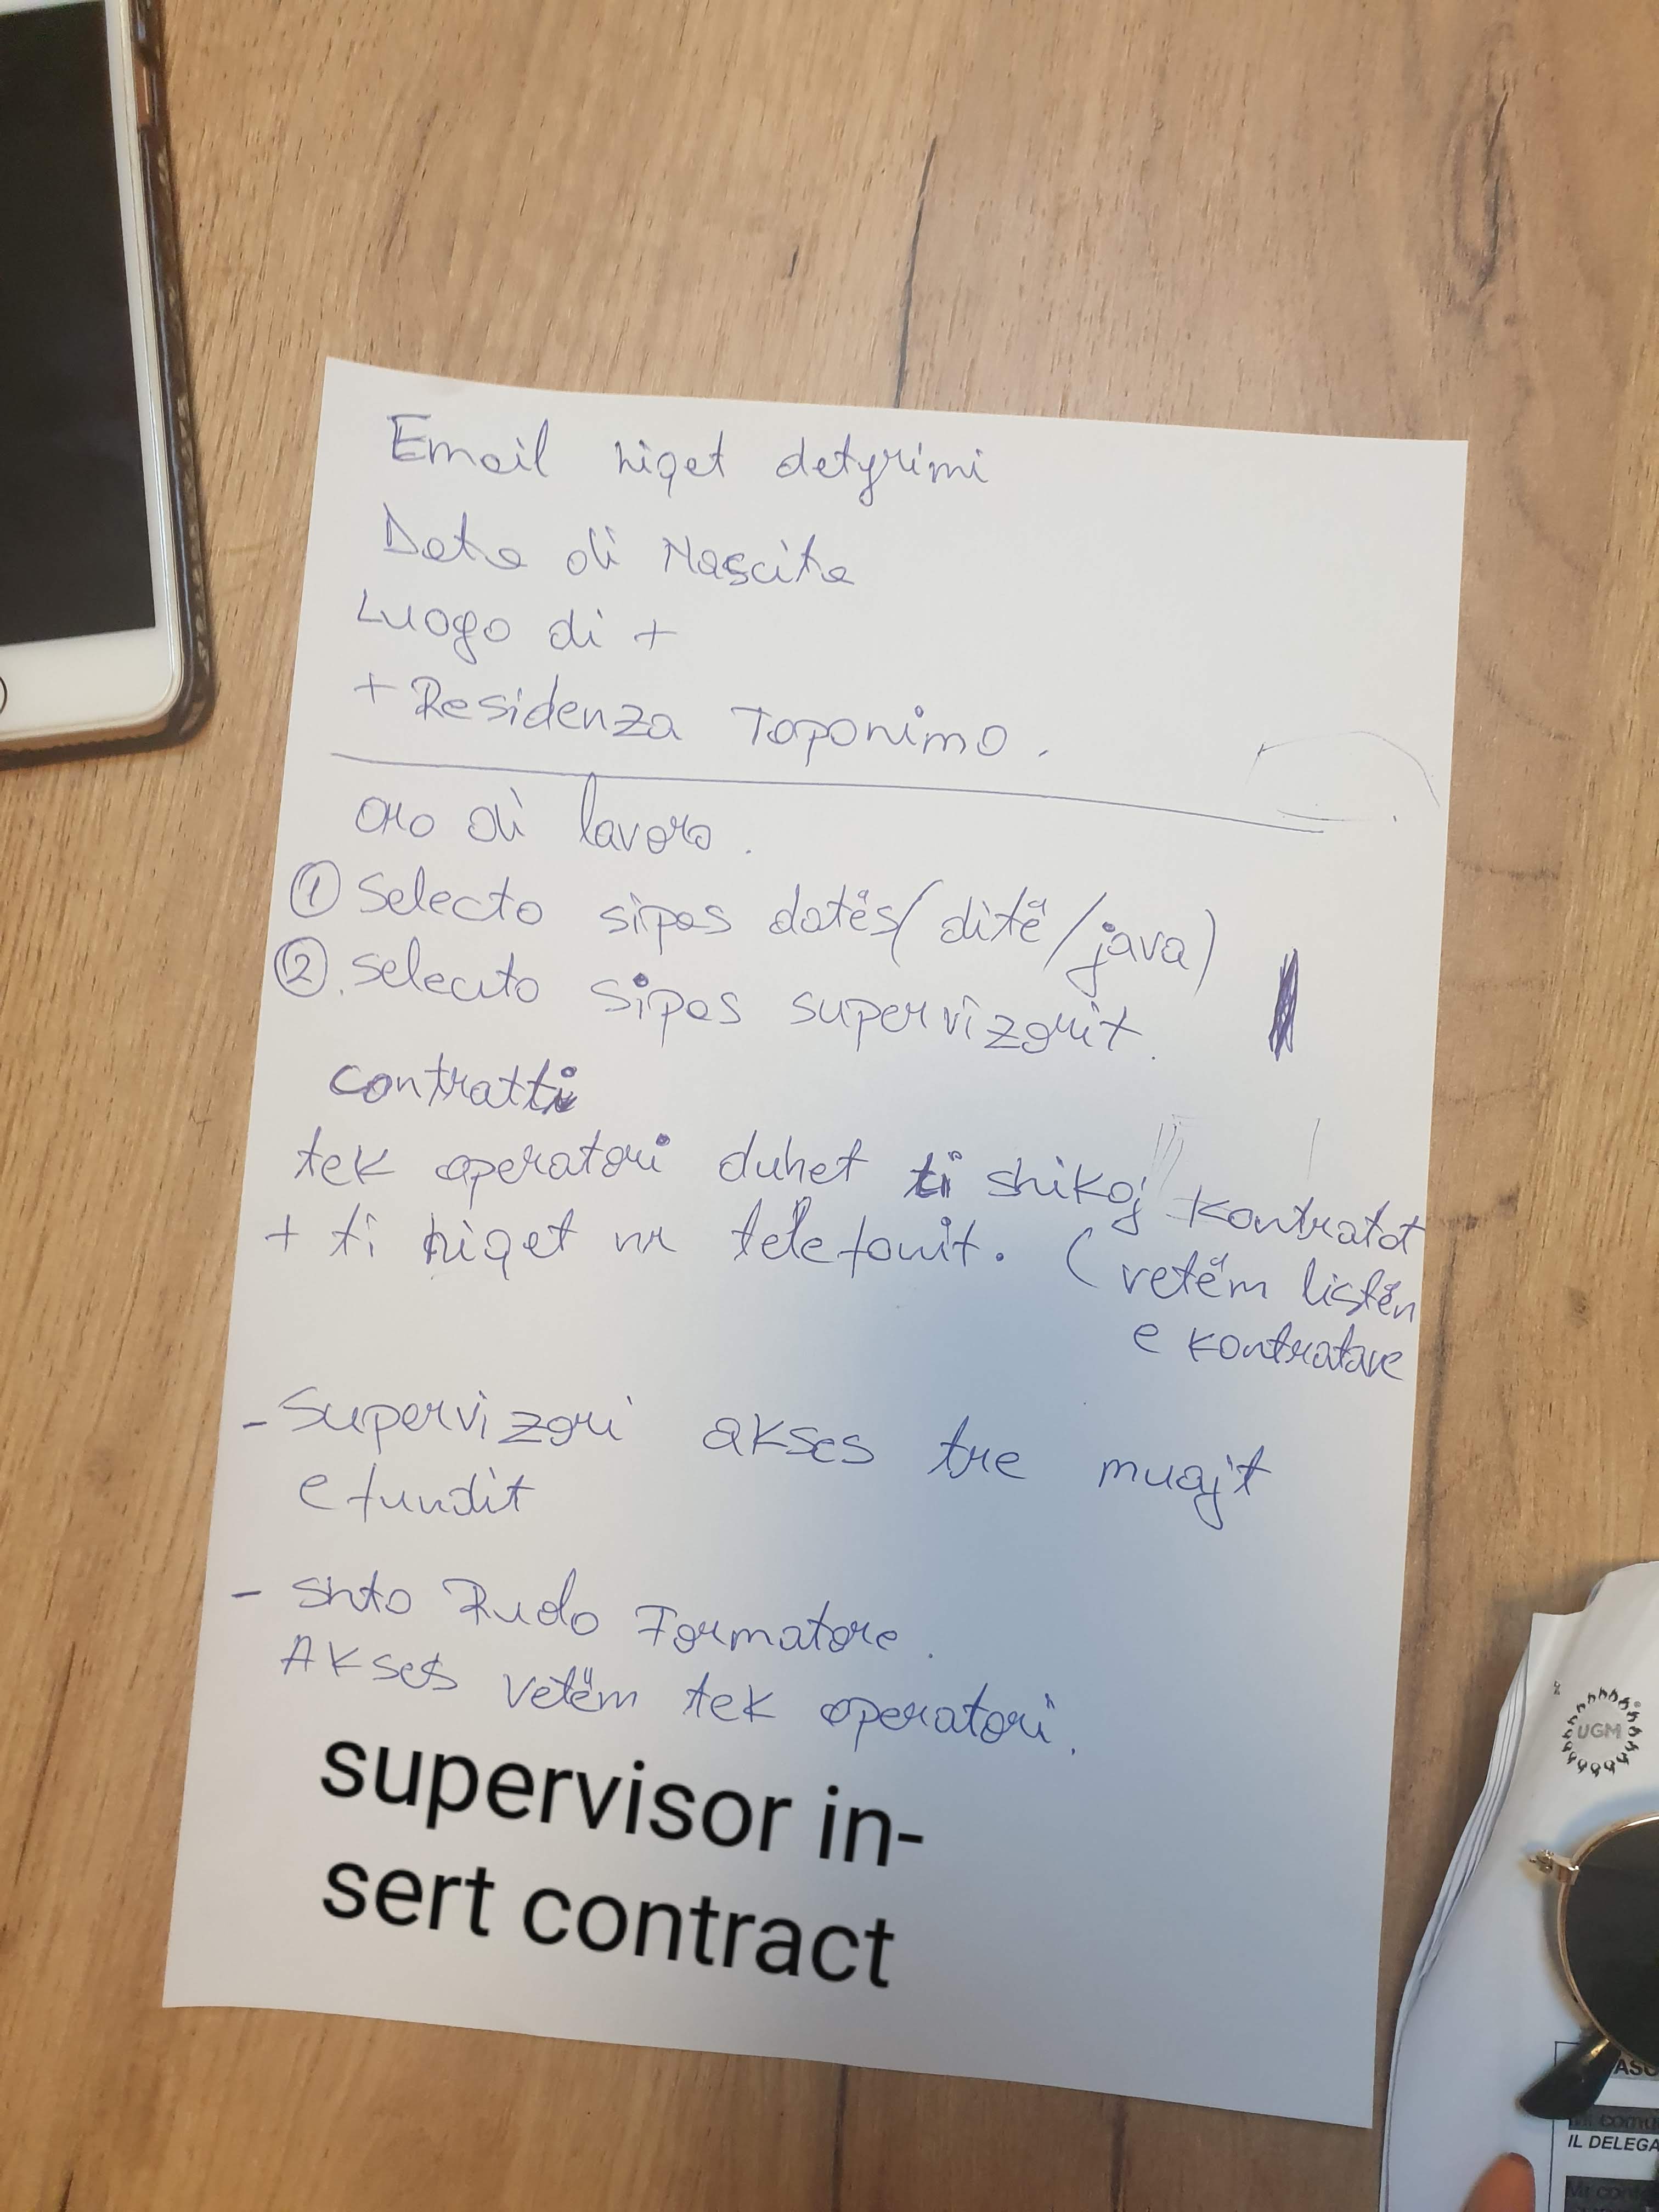 Email hiqet detyrimi
Data di Nascita
Luogo di +
+ Residenza Toponimo.
oro di lavoro.
① Selecto sipas datës (ditë/java)
②. selecto sipas supervizorit.
contratti
tek operatori duhet ti shikoj kontratat
+ ti hiqet nr telefonit. (vetëm listën
e kontratave
- Supervizori akses tre muajt
e fundit
- shto Rudo Formatore.
Akses vetëm tek operatori.
supervisor in-
sert contract
UGM
IL DELEGA